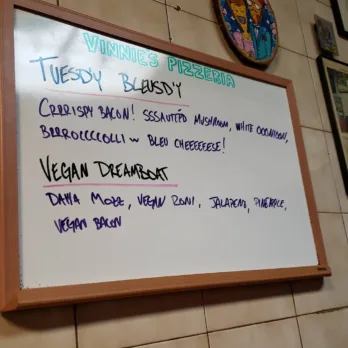 VINNIES PIZZERIA
TUESD'Y BLEUSD'Y
CRRRISPY BACON! SSSAUTÉED MUSHROOM, WHITE OOONION,
BRRROCCCCOLLI ~ BLEU CHEEEEEESE!
VEGAN DREAMBOAT
DAIYA MOZZ, VEGAN RONI, JALAPENO, PINEAPPLE,
VEGAN BACON